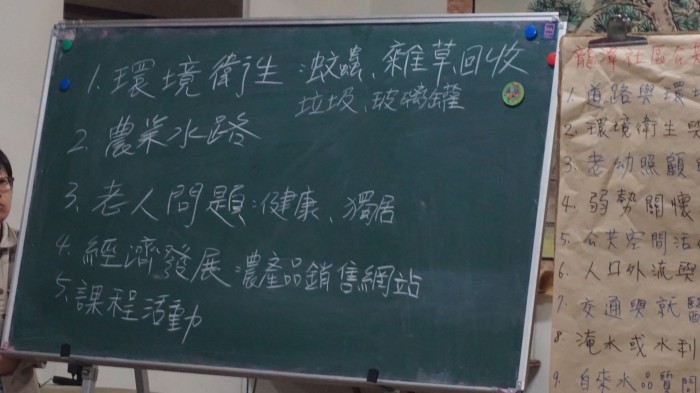 1. 環境衛生:蚊蟲、雜草回收
垃圾、玻璃罐
2. 農業水路
3. 老人問題:健康、獨居
4. 經濟發展:農產品銷售網站
5. 課程活動
龍潭社區
1. 道路與環境
2. 環境衛生
3. 老幼照顧
4. 弱勢關懷
5. 公共空間活
6. 人口外流與
7. 交通與就醫
8 淹水或水利
9. 自來水品質問